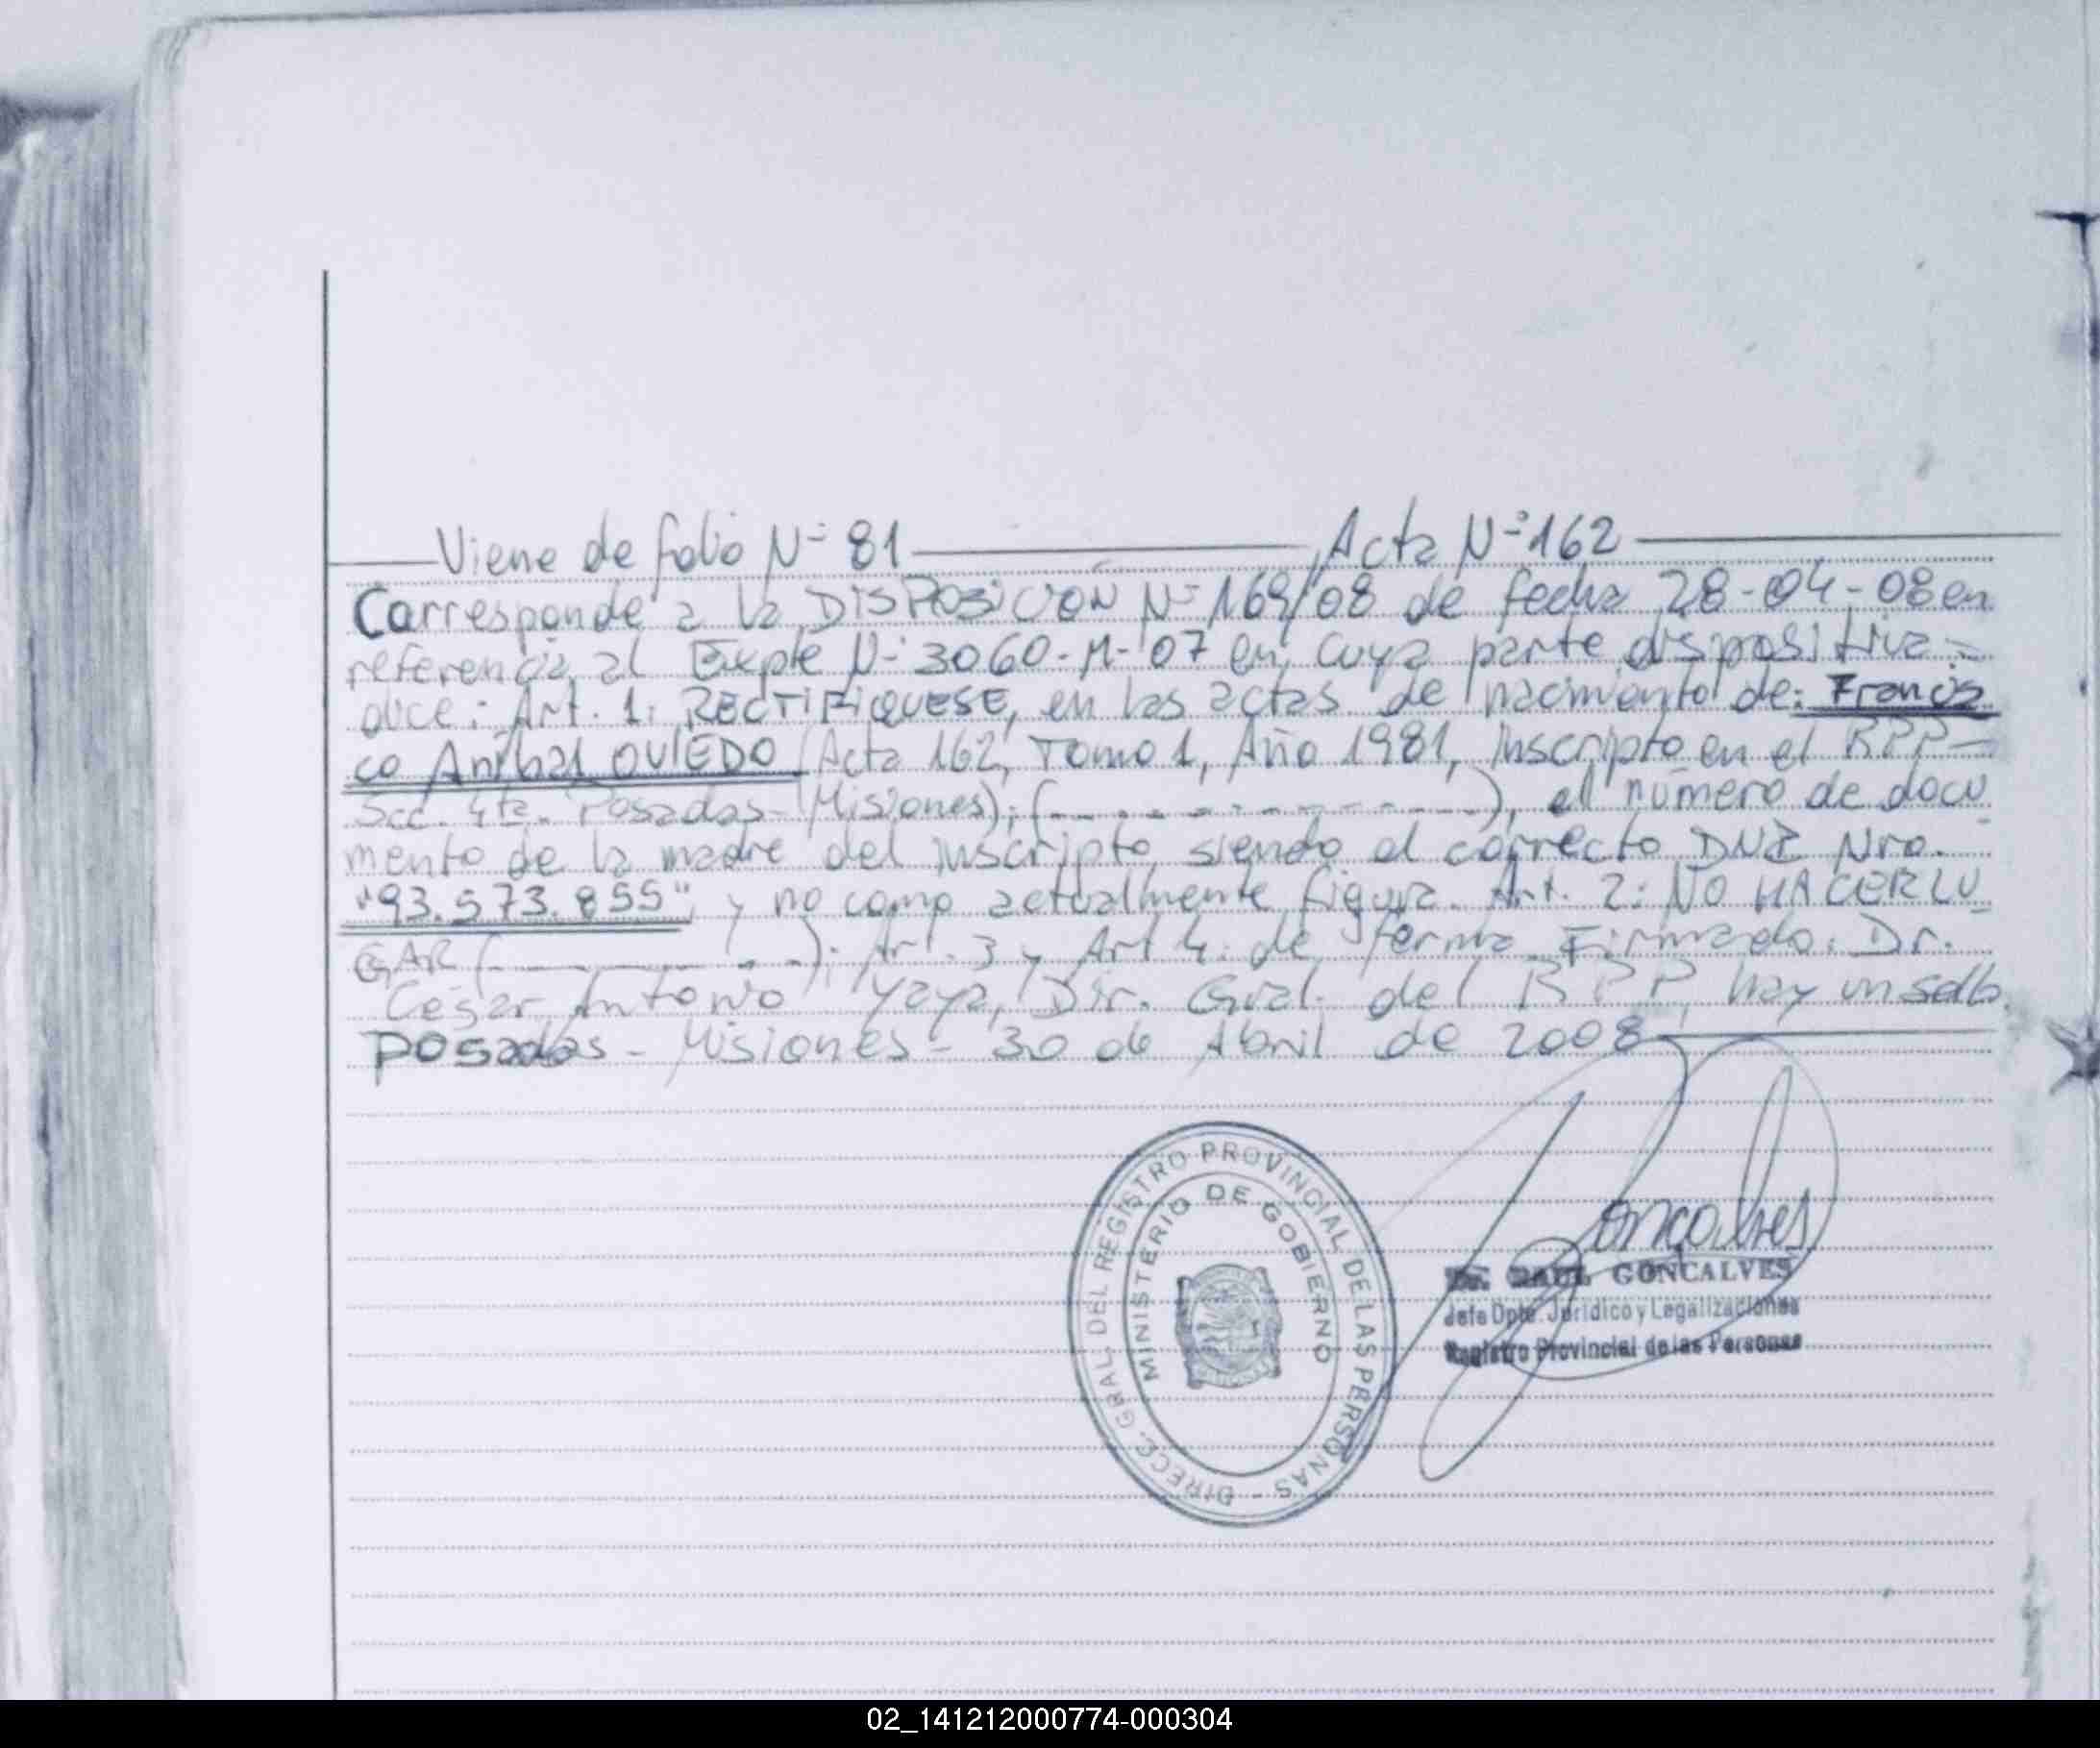 Viene de folio Nº 81 Acta Nº 162
Corresponde a la DISPOSICIÓN Nº 169/08 de fecha 28-04-08 en
referencia al Expte Nº 3060-M-07 en cuya parte dispositiva =
dice: Art. 1: RECTIFIQUESE, en las actas de nacimiento de: Francis
co Anibal OVIEDO (Acta 162, Tomo 1, Año 1981, inscripto en el RPP-
Scc. 4ta. Posadas-Misiones); (- - - - - - - - - -), el número de docu
mento de la madre del inscripto siendo el correcto DNI Nro.
"93.573.855" y no como actualmente figura. Art. 2: NO HACER LU
GAR (- - - - - -). Art. 3 y Art 4: de forma Firmado: Dr.
César Antonio Yaya, Dir. Gral. del RPP, hay un sello.
Posadas - Misiones - 30 de Abril de 2008
DIRECC. GRAL. DEL REGISTRO PROVINCIAL DE LAS PERSONAS -
MINISTERIO DE GOBIERNO
Goncalves
Dr. RAUL GONCALVES
Jefe Dpto. Jurídico y Legalizaciones
Registro Provincial de las Personas
02_141212000774-000304